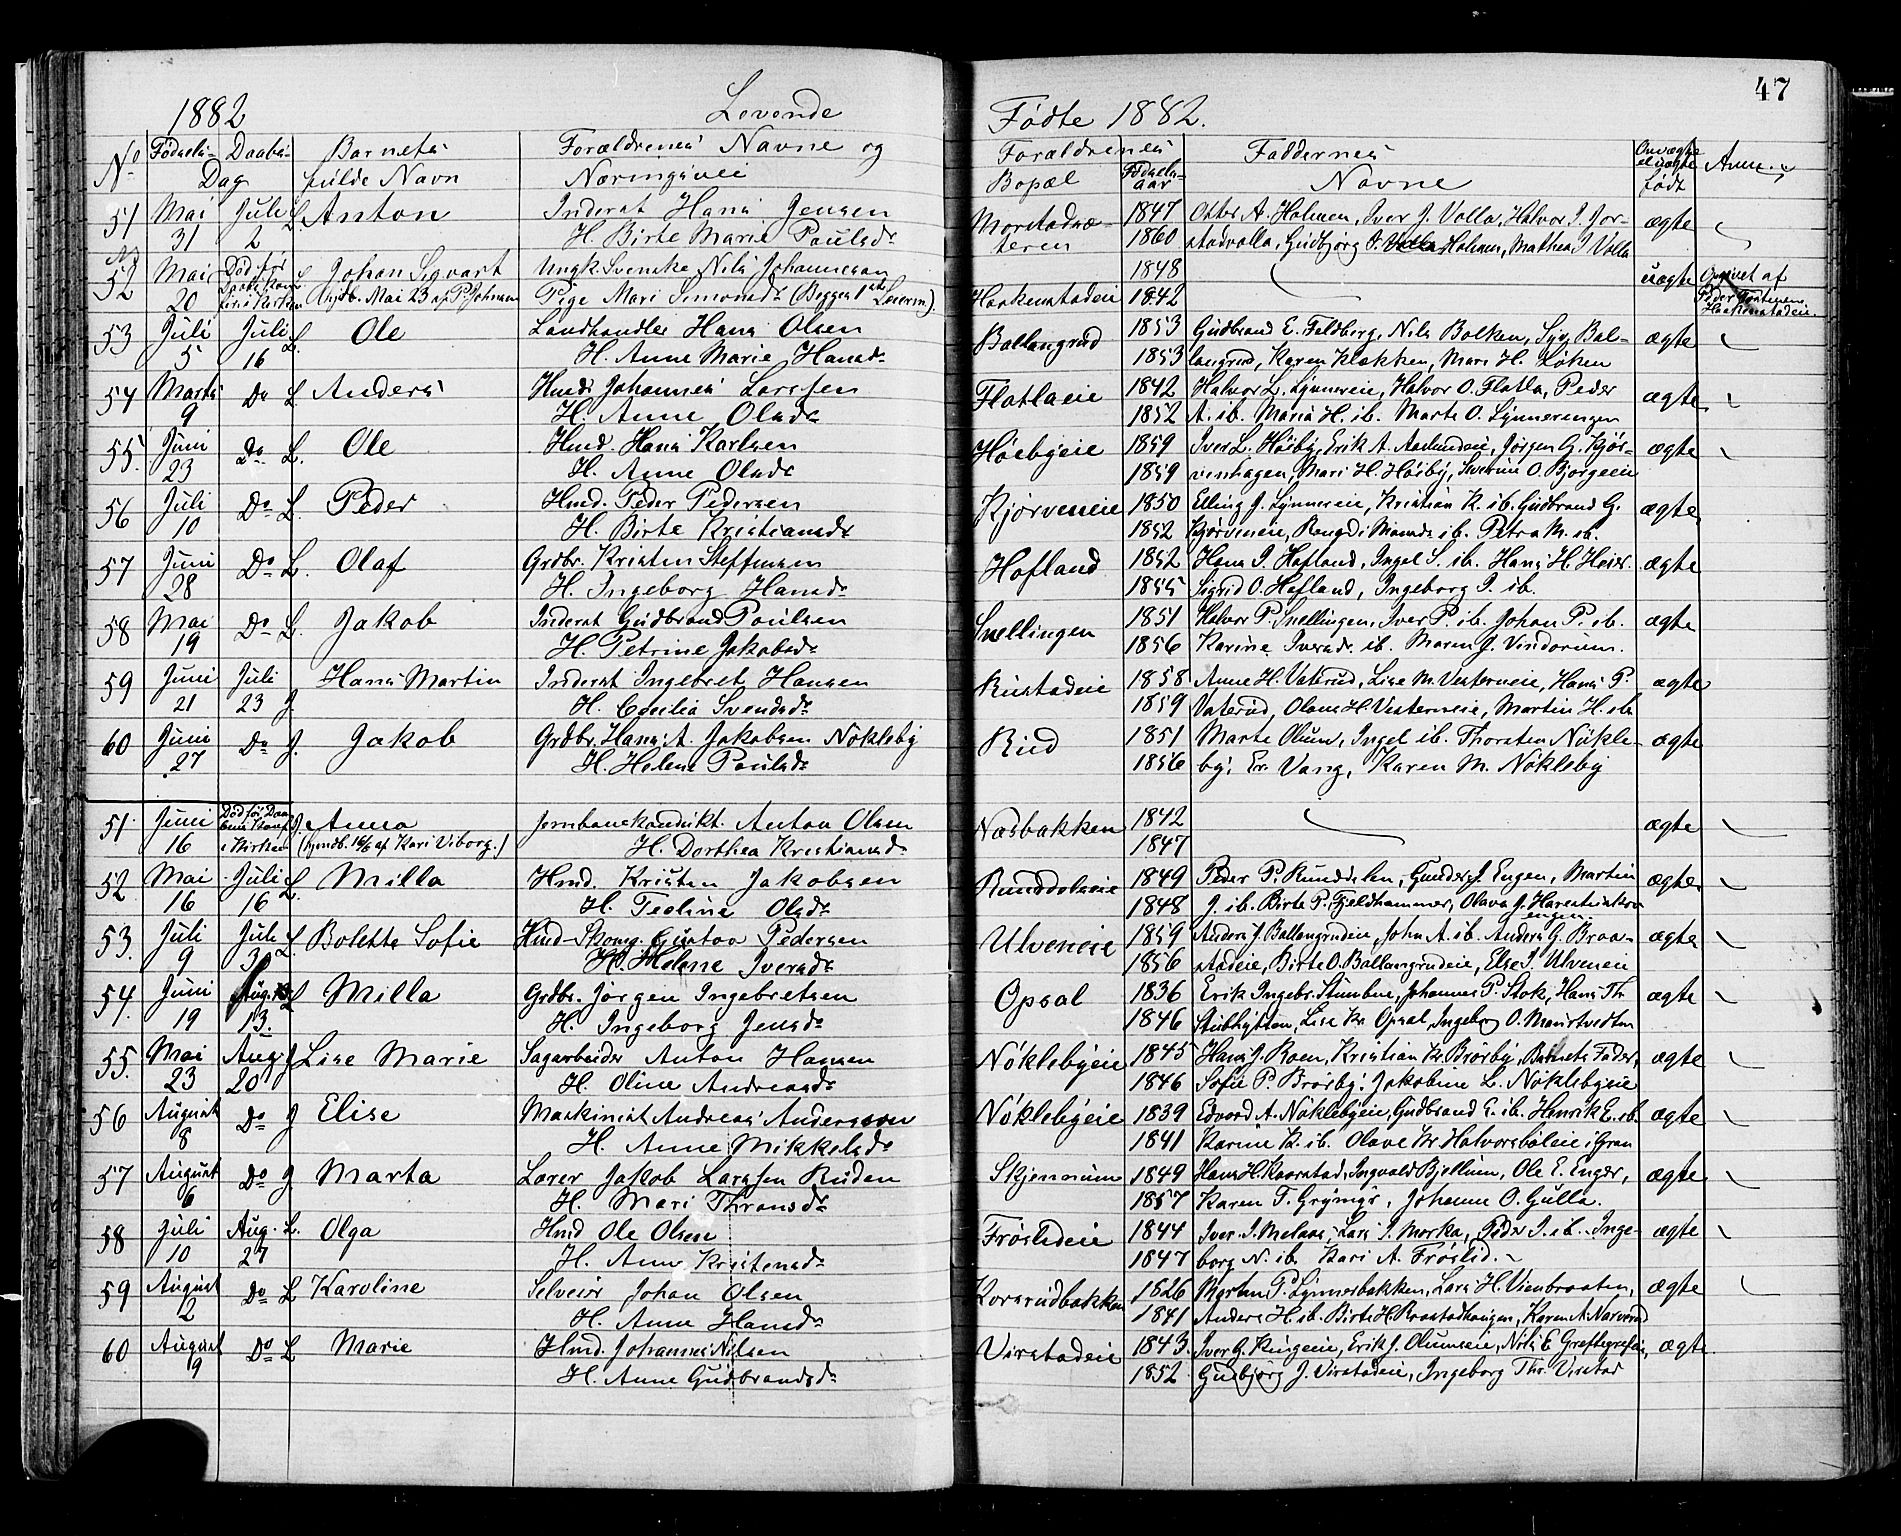 47
1882 Levende Fødte 1882.
No Fødsels- Daabs- Barnets Forældrenes Navne og Forældrenes Faddernes Anm.
Dag fulde Navn Næringsvei Bopæl Fødselsaar Navne født
51 Mai Juli L Anton Inderst Hans Jensen 1847 Otter A. Holmen, Iver J. Volla, Halvor J. Jor- ægte
31 2 H. Birte Marie Paulsdr 1860 stadvolla, Gudbjørg Holmen, Mathea J. Volla
52 Mai Død før L Johan Sigvart Ungk. Svenske Nils Johannesen 1848 uægte Opgivet af
20 Mai 23 af P. Johnsen Pige Mari Simensdr (Begges 1ste Leierm.) Haakenstadeie 1842 Peder
53 Juli Juli L. Ole Landhandler Hans Olsen Ballangrud 1853 Gudbrand E. Feldberg, Nils Bolken, Siv Bal- ægte
5 16 H. Anne Marie Hansdr 1853 langrud, Karen Klækken, Mari H. Løken
54 Marts Do L Anders Hmd. Johannes Larssen Flatlaeie 1842 Halvor L. Lynnereie, Halvor O. Flatla, Peder ægte
9 H. Anne Olsdr 1852 A. ib. Maria H. ib. Marte O. Lynnerengen
55. Juni Do L. Ole Hmd. Hans Karlsen Høibyeie 1859 Iver L. Høiby, Erik A. Jørgen G. Kjør- ægte
23 H. Anne Olsdr 1859 venhagen, Mari H. Høiby, Severine O. Bjorgeeie
56 Juli Do L. Peder Hmd. Peder Pedersen Kjørveneie 1850 Elling J. Lynnereie, Kristian K. ib. Gudbrand G. ægte
10 H. Birte Kristiansdr 1852 Kjørveneie, Rangdi Mansdr ib. Petra M. ib.
57 Juni Do L. Olaf Grdbr. Kristen Steffensen Hofland 1852 Hans I. Hofland, Ingel S. ib. Hans H. Heier. ægte
28 H. Ingeborg Hansdr 1855 Sigrid O. Hofland, Ingeborg I. ib.
58 Mai Do L. Jakob Inderst Gudbrand Poulsen Snellingen 1851 Halvor P. Snellingen, Iver P. ib. Johan P. ib. ægte
19 H. Petrine Jakobsdr 1856 Karine Iversdr ib. Maren J. Vindorum.
59 Juni Juli Hans Martin Inderst Ingebret Hansen Rustadeie 1858 Anne H. Vaterud, Lise M. Vesterneie, Hans P. ægte
21 23 J. H. Cecilia Svendsdr 1859 Vaterud, Olam H. Vesterneie, Martin H. ib.
60 Juni Do J. Jakob Grdbr. Hans A. Jakobsen Nøkleby Rud 1851 Marte Olum, Ingel ib. Thorsten Nøkle- ægte
27 H. Helene Paulsdr 1856 by, Er. Vang, Karen M. Nøkleby
51 Juni Død før Daa- J. Anna Jernbanekondukt. Anton Olsen Næsbakken 1842 ægte
16 i Kirken (hjemdb. 16/6 af Kari Viborg.) H. Dorthea Kristiansd. 1847
52 Mai Juli L. Milla Hmd. Kristen Jakobsen Runddoleie 1849 Peder P. Runddelen, Gunder J. Engen, Martin ægte
16 16 H. Teoline Olsdr 1848 J. ib. Birte P. Fjeldhammer, Olava J.
engen.
53. Juli Juli L Bolette Sofie Hmd-Skomg. Gustav Pedersen Ulveneie 1859 Anders J. Ballangrudeie, John A. ib. Anders G. Braa- ægte
9 30 H. Helene Iversdr 1856 stadeie, Birte O. Ballangrudeie, Else J. Ulveneie
54. Juni Aug. L Milla Grdbr. Jørgen Ingebretsen Opsal 1836 Erik Ingebr. Stumbne, Johannes P. Stok, Hans Th. ægte
19 13. H. Ingeborg Jensdr 1846 Stubhytten, Lise Kr. Opsal, Ingeborg O.
55. Mai Aug. J Lise Marie Sagarbeider Anton Hansen Nøklebyeie 1845 Hans J. Roen, Kristian Kr. Brørby, Barnets Fader, ægte
23 20 H. Oline Andreasdr 1846 Sofie P. Brørby, Jakobine L. Nøklebyeie
56 August Do J Elise Maskinist Andreas Andersson Nøklebyeie 1839 Edvard A. Nøklebyeie, Gudbrand E. ib. Henrik E. ib. ægte
8 H. Anne Mikkelsdr 1841 Karine K. ib. Olave Kr. Halvorsbøleie i Gran
57 August Do J Marta Lærer Jakob Larssen Ruden Skjennum 1849 Hans H. Kaarstad, Ingvald Bjellum, Ole E. Enger, ægte
6 H. Mari Thransdr 1857 Karen T. Grymyr, Johanne O. Gulla.
58 Juli Aug. L. Olga Hmd Ole Olsen Frøslideie 1844 Iver I. Melaas, Lars I. Morka, Peder I. ib. Inge- ægte
10 27 H. Anne Kristensdr 1847 borg N. ib. Kari A. Frøslid.
59 August Do L Karoline Selveier Johan Olsen Korsrudbakken 1826 Morten P. Lynnebakken, Lars H. Vienbraaten, ægte
2 H. Anne Hansdr 1841 Anders H. ib. Birte H. Karen A. Narverud
60 August Do L Marie Hmd. Johannes Nilsen Virstadeie 1843 Iver G. Ringeie, Erik J. Olumseie, Nils E. ægte
9 H. Anne Gudbrandsdr 1852 Gudbjørg J. Virstadeie, Ingeborg Th. Virstad